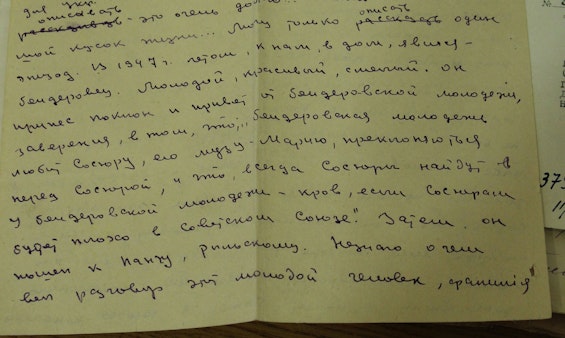 описать
описать
рассказывать - это очень
мой кусок жизни... Могу только рассказать один
эпизод. В 1947 г. летом, к нам, в дом, явился -
бендеровец. Молодой, красивый, смелый. Он
принес поклон и привет от бендеровской молодежи,
заверения, в том, что, "бендеровская молодежь
любит Сосюру, его музу - Марию, преклоняються
перед Сосюрой, и что, всегда Сосюры найдут в
у бендеровской молодежи - кров, если Сосюрам
будет плохо в Советском Союзе". Затем он
пошел к Панчу, Рильскому. Незнаю о чем
вел разговор этот молодой человек,
379